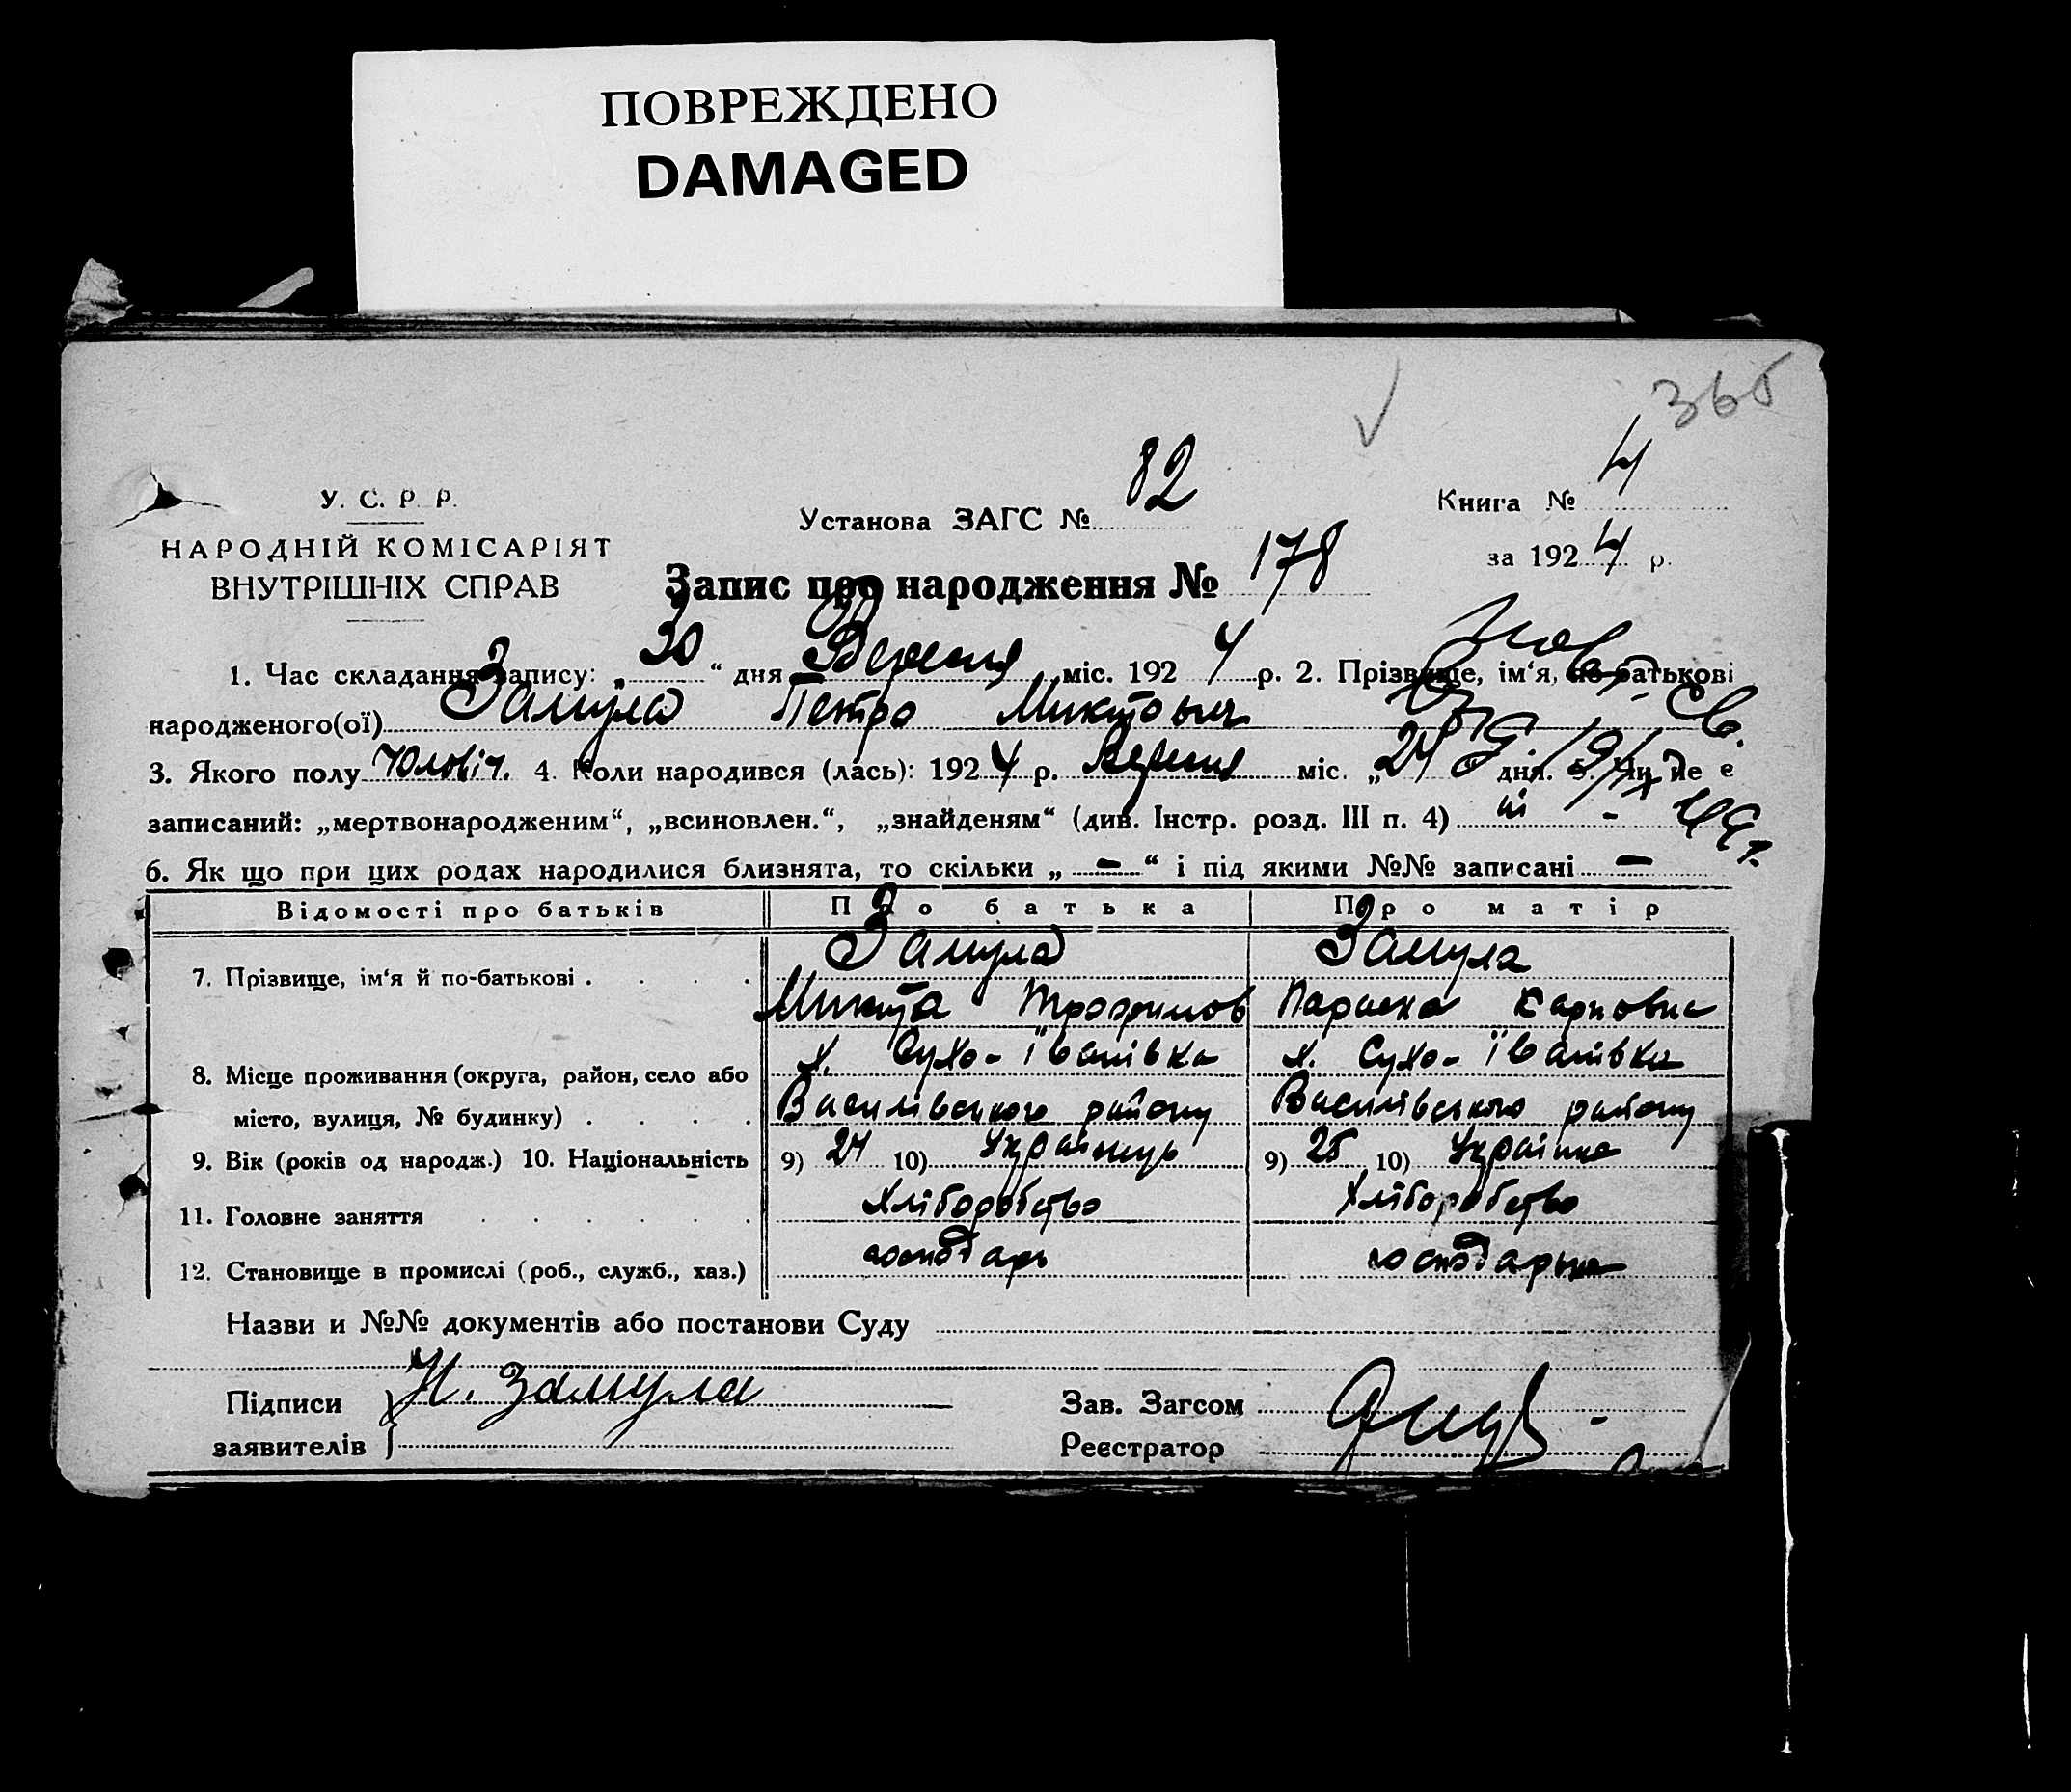 ПОВРЕЖДЕНО
DAMAGED
365
У. С. Р. Р.
НАРОДНІЙ КОМІСАРІЯТ
ВНУТРІШНІХ СПРАВ
Установа ЗАГС № 82
Книга № 4
за 1924 р.
Запис про народження № 178
1. Час складання запису: „30“ дня Вересня міс. 1924 р. 2. Прізвище, ім‘я, по-батькові
народженого(ої) Замула Петро Микитович
3. Якого полу Чоловіч. 4. Коли народився (лась): 1924 р. Вересня міс. „24 дня. 5. Чи не є
записаний: „мертвонародженим“, „всиновлен.“, „знайденям“ (див. Інстр. розд. III п. 4) ні -
6. Як що при цих родах народилися близнята, то скільки „ — “ і під якими №№ записані —
Відомості про батьків Про батька Про матір
7. Прізвище, ім‘я й по-батькові . . . . Замула Замула
Микита Трофимов Параска Карповна
х. Сухо-Іванівка х. Сухо-Іванівка
8. Місце проживання (округа, район, село або
місто, вулиця, № будинку) . . . . Василівського району Василівського району
9. Вік (років од народж.) 10. Національність 9) 24 10) Українець 9) 25 10) Українка
11. Головне заняття . . . . . . Хліборобство Хліборобство
12. Становище в промислі (роб., служб., хаз.) господарь господарька
Назви и №№ документів або постанови Суду
Підписи Н. Замула
заявителів
Зав. Загсом
Реєстратор